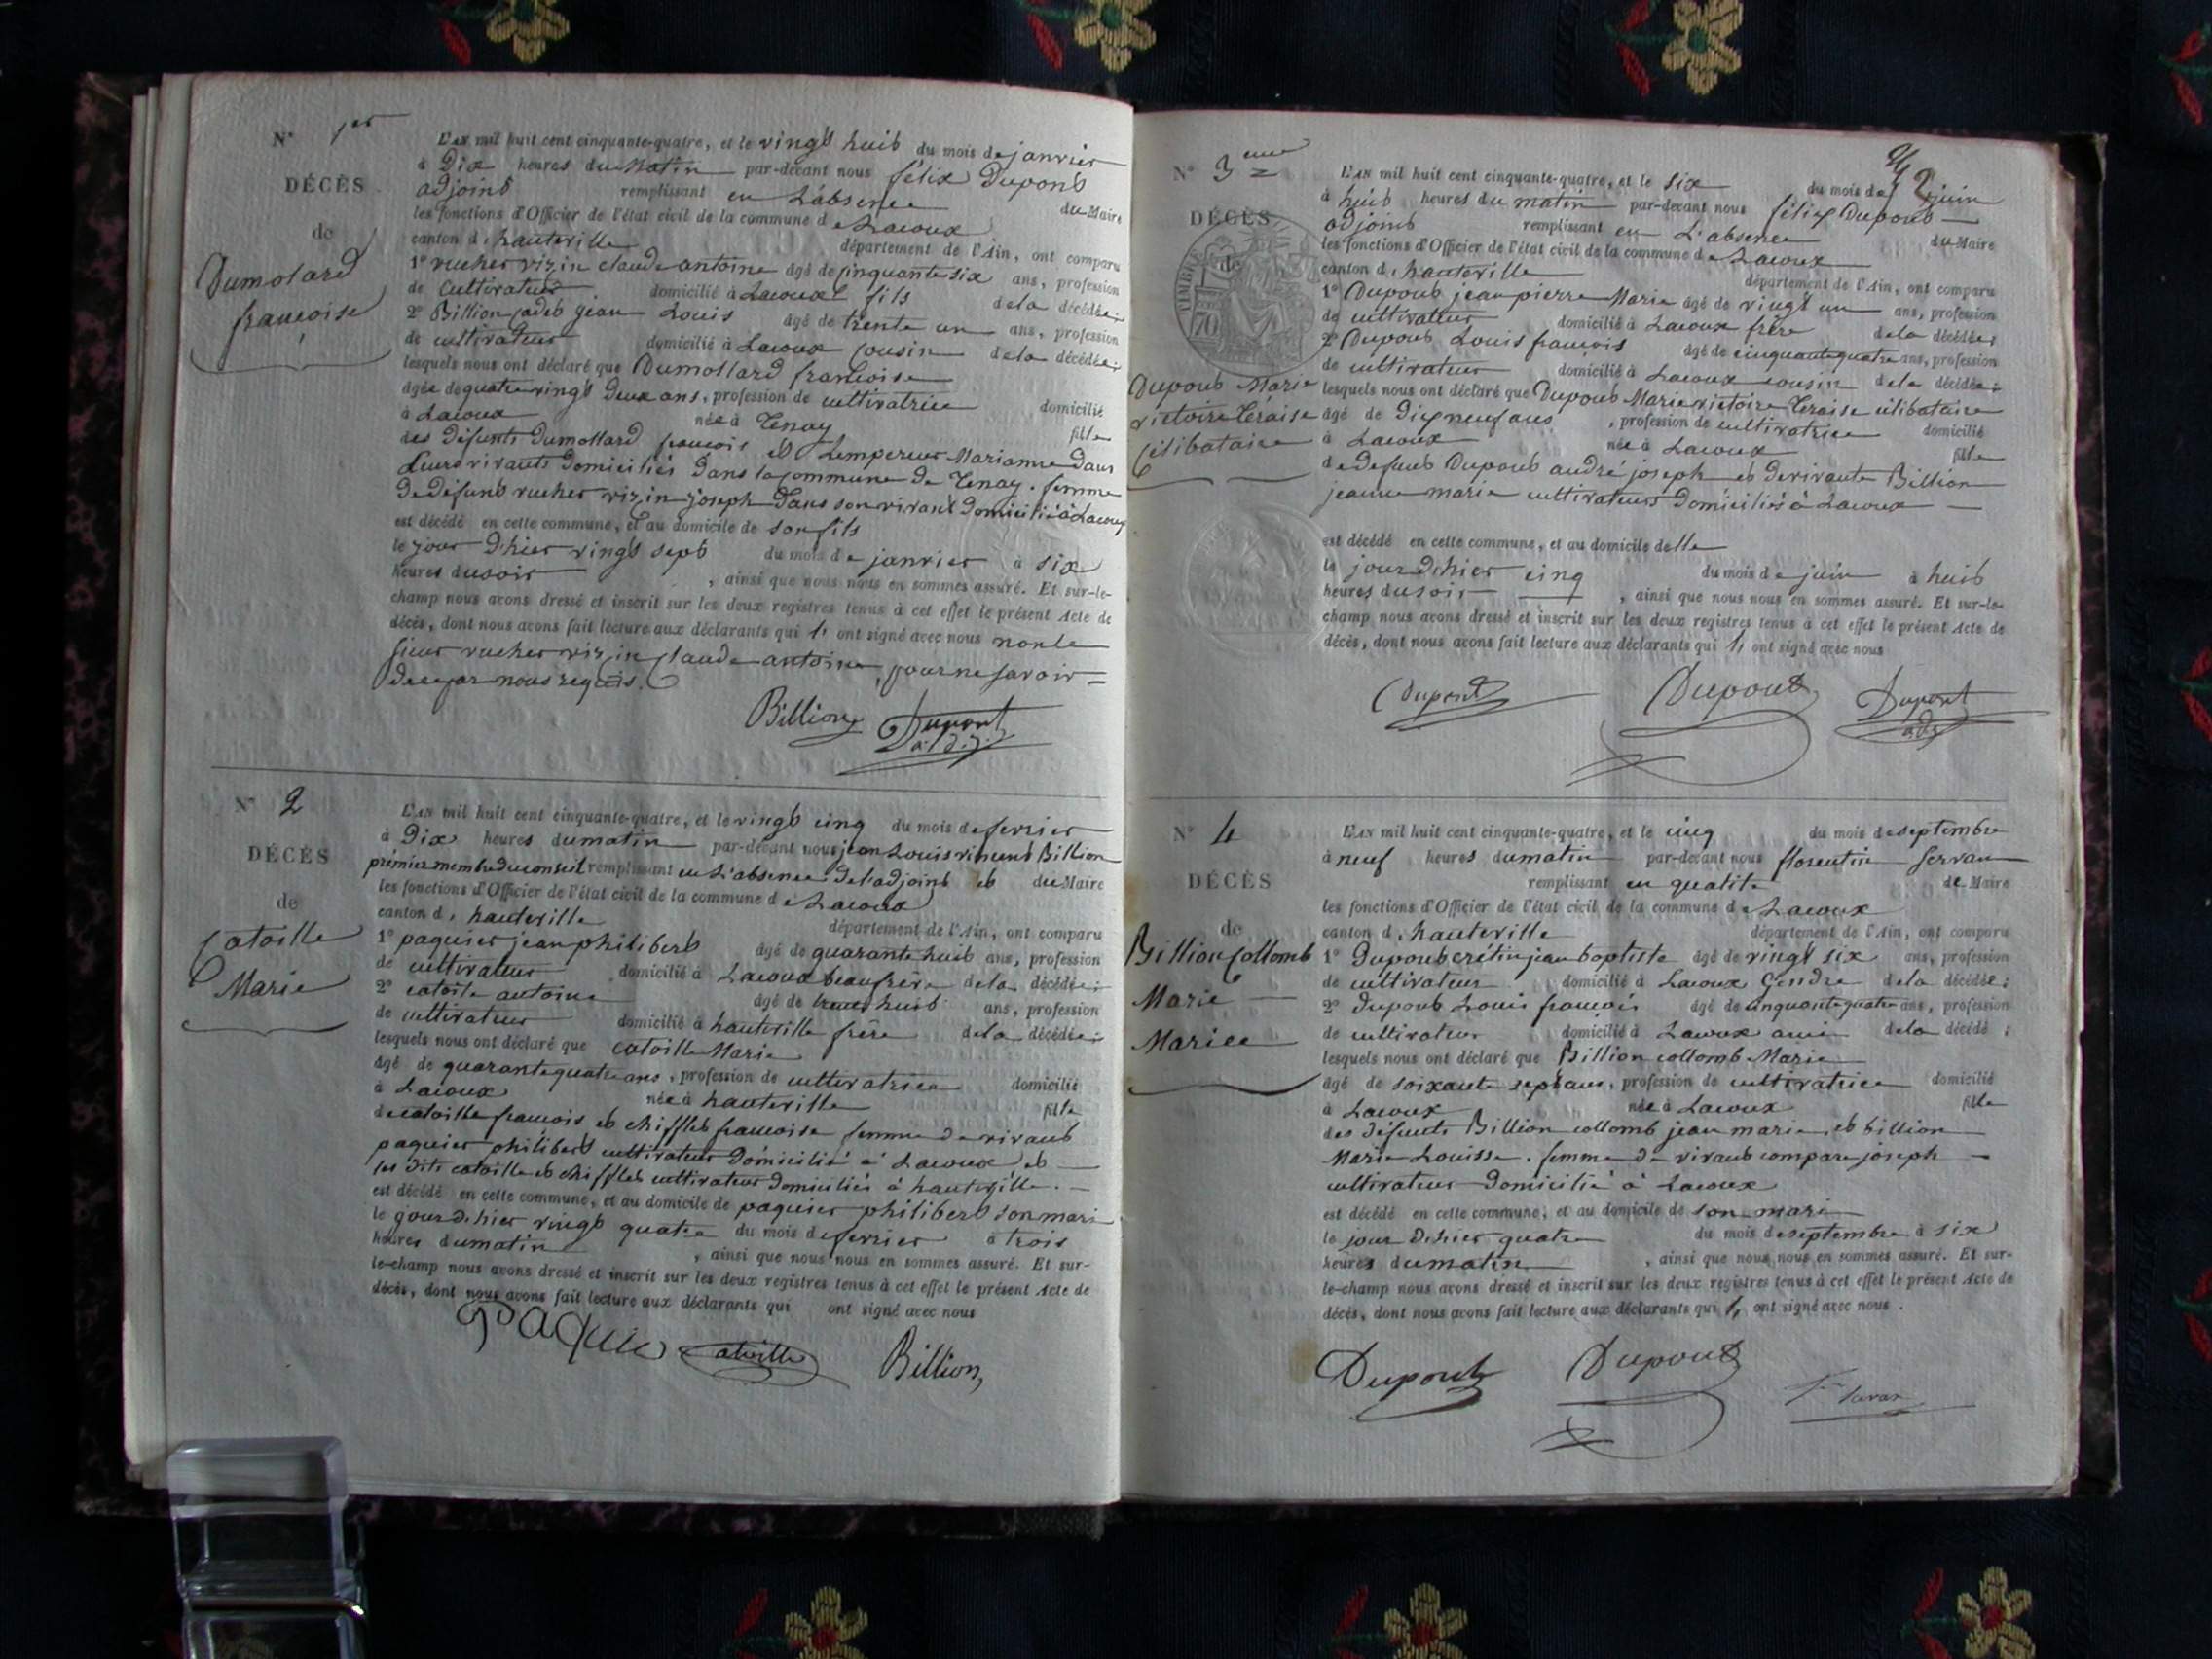 N° 1er
L'AN mil huit cent cinquante-quatre, et le vingt huit du mois de janvier
à Dix heures du Matin par-devant nous félix Dupont
adjoint remplissant en L'absence du Maire
les fonctions d'Officier de l'état civil de la commune de Lacoux
canton d'hauteville département de l'Ain, ont comparu
1° rucher vizin claude antoine âgé de cinquante six ans, profession
de Cultivateur domicilié à Lacoux fils de la décédée;
2° Billion jadeb jean Louis âgé de trente un ans, profession
de cultivateur domicilié à Lacoux cousin de la décédée;
lesquels nous ont déclaré que Dumollard françoise
âgée de quatre vingt Deux ans, profession de cultivatrice domicilié
à Lacoux née à Tenay fille
des Défunts Dumollard françois et Lempereur Marianne dans
Leurs vivants Domiciliés Dans la commune De Tenay. femme
De Défunt rucher vizin joseph Dans son vivant Domicilié à Lacoux
est décédé en cette commune, et au domicile de son fils
le jour D'hier vingt sept du mois de janvier à six
heures du soir, ainsi que nous nous en sommes assuré. Et sur-le-
champ nous avons dressé et inscrit sur les deux registres tenus à cet effet le présent Acte de
décès, dont nous avons fait lecture aux déclarants qui ont signé avec nous non le
sieur rucher vizin claude antoine, pour ne savoir
de ce par nous requis.
Billion Dupont adj.
DÉCÈS
de
Dumolard
françoise
N° 2
L'AN mil huit cent cinquante-quatre, et le vingt cinq du mois de fevrier
à Dix heures du matin par-devant nous jean Louis vincent Billion
prémier membre du conseil remplissant en L'absence De l'adjoint et du Maire
les fonctions d'Officier de l'état civil de la commune de Lacoux
canton d'hauteville département de l'Ain, ont comparu
1° paquier jean philibert âgé de quarante huit ans, profession
de cultivateur domicilié à Lacoux beaufrère de la décédée;
2° catoile antoine âgé de trente huit ans, profession
de cultivateur domicilié à hauteville frère de la décédée;
lesquels nous ont déclaré que Catoille Marie
âgé de quarante quatre ans, profession de cultivatrice domicilié
à Lacoux née à hauteville fille
de catoille françois et chifflet françoise femme de vivant
paquier philibert cultivateur Domicilié à Lacoux et
les dits catoille et chifflet cultivateur Domiciliés à hauteville.
est décédé en cette commune, et au domicile de paquier philibert son mari
le jour d'hier vingt quatre du mois de fevrier à trois
heures du matin, ainsi que nous nous en sommes assuré. Et sur-
le-champ nous avons dressé et inscrit sur les deux registres tenus à cet effet le présent Acte de
décès, dont nous avons fait lecture aux déclarants qui ont signé avec nous
Paquie Catoille Billion,
DÉCÈS
de
Catoille
Marie
N° 3eme
L'AN mil huit cent cinquante-quatre, et le six du mois de juin
à huit heures du matin par-devant nous félix Dupont
adjoint remplissant en L'absence du Maire
les fonctions d'Officier de l'état civil de la commune de Lacoux
canton d'hauteville département de l'Ain, ont comparu
1° Dupont jean pierre Marie âgé de vingt un ans, profession
de cultivateur domicilié à Lacoux frère de la décédée;
2° Dupont Louis françois âgé de cinquante quatre ans, profession
de cultivateur domicilié à Lacoux cousin de la décédée;
lesquels nous ont déclaré que Dupont Marie victoire Teraise célibataire
âgé de Dix neuf ans, profession de cultivatrice domicilié
à Lacoux née à Lacoux fille
de defunt Dupont andré joseph et De vivante Billion
jeanne marie cultivateurs Domiciliés à Lacoux
est décédé en cette commune, et au domicile d'elle
le jour d'hier cinq du mois de juin à huit
heures du soir, ainsi que nous nous en sommes assuré. Et sur-le-
champ nous avons dressé et inscrit sur les deux registres tenus à cet effet le présent Acte de
décès, dont nous avons fait lecture aux déclarants qui ont signé avec nous
Dupont Dupont Dupont adj
DÉCÈS
de
TIMBRE
70
Dupont Marie
victoire Téraise
Célibataire
N° 4
L'AN mil huit cent cinquante-quatre, et le cinq du mois de septembre
à neuf heures du matin par-devant nous florentin Servan
remplissant en qualité de Maire
les fonctions d'Officier de l'état civil de la commune de Lacoux
canton d'hauteville département de l'Ain, ont comparu
1° Dupont crétin jean baptiste âgé de vingt six ans, profession
de cultivateur domicilié à Lacoux Gendre de la décédée;
2° Dupont Louis françois âgé de cinquante quatre ans, profession
de cultivateur domicilié à Lacoux ami de la décédé;
lesquels nous ont déclaré que Billion collomb Marie
âgé de soixante sept ans, profession de cultivatrice domicilié
à Lacoux née à Lacoux fille
des défunts Billion collomb jean marie, et billion
Marie Louisse. femme De vivant compare joseph
cultivateur Domicilié à Lacoux
est décédé en cette commune, et au domicile de son mari
le jour D'hier quatre du mois de septembre à six
heures du matin, ainsi que nous nous en sommes assuré. Et sur-
le-champ nous avons dressé et inscrit sur les deux registres tenus à cet effet le présent Acte de
décès, dont nous avons fait lecture aux déclarants qui ont signé avec nous.
Dupont Dupont F. Servan
DÉCÈS
de
Billion Collomb
Marie
Mariee